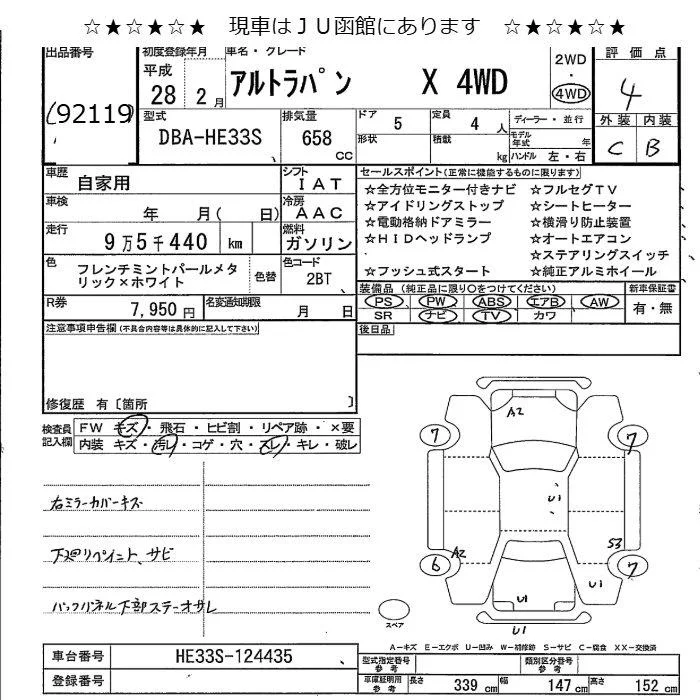 ☆★☆★☆★ 現車はＪＵ函館にあります ☆★☆★☆★
出品番号 初度登録年月 車名・グレード 2WD・4WD 評価点
92119 平成28年2月 アルトラパン X 4WD 4
外装 内装
C B
型式 排気量 ドア 定員 ディーラー・並行
DBA-HE33S 658cc 5 4人
形状 積載 kg モデル年式 年 ハンドル 左・右
車歴 自家用 シフト IAT
車検 年 月( 日) 冷房 AAC
走行 9万5千440km 燃料 ガソリン
色 フレンチミントパールメタリック×ホワイト 色替 色コード 2BT
R券 7,950円 名変通知期限 月 日
セールスポイント(正常に機能するものに限ります)
☆全方位モニター付きナビ ☆フルセグTV
☆アイドリングストップ ☆シートヒーター
☆電動格納ドアミラー ☆横滑り防止装置
☆HIDヘッドランプ ☆オートエアコン
☆ステアリングスイッチ
☆プッシュ式スタート ☆純正アルミホイール
装備品(純正品に限り○をつけてください) 新車保証書
PS PW ABS エアB AW 有・無
SR ナビ TV カワ
後日品
注意事項申告欄(不具合内容等は具体的に記入して下さい)
修復歴 有〔箇所 〕
検査員記入欄 FW キズ・飛石・ヒビ割・リペア跡・×要
内装 キズ・汚レ・コゲ・穴・スレ・キレ・破レ
右ミラーカバーキズ
下廻リペイント、サビ
バックパネル下部ステーオサレ
A2
7 7
U1
A2 S3
6 7
U1 U1
U1
スペア
A－キズ E－エクボ U－凹み W－補修跡 S－サビ C－腐食 XX－交換済
車台番号 HE33S-124435
登録番号
型式指定番号 参考 類別区分番号 参考
車庫証明用 参考 長さ 339cm 幅 147cm 高さ 152cm